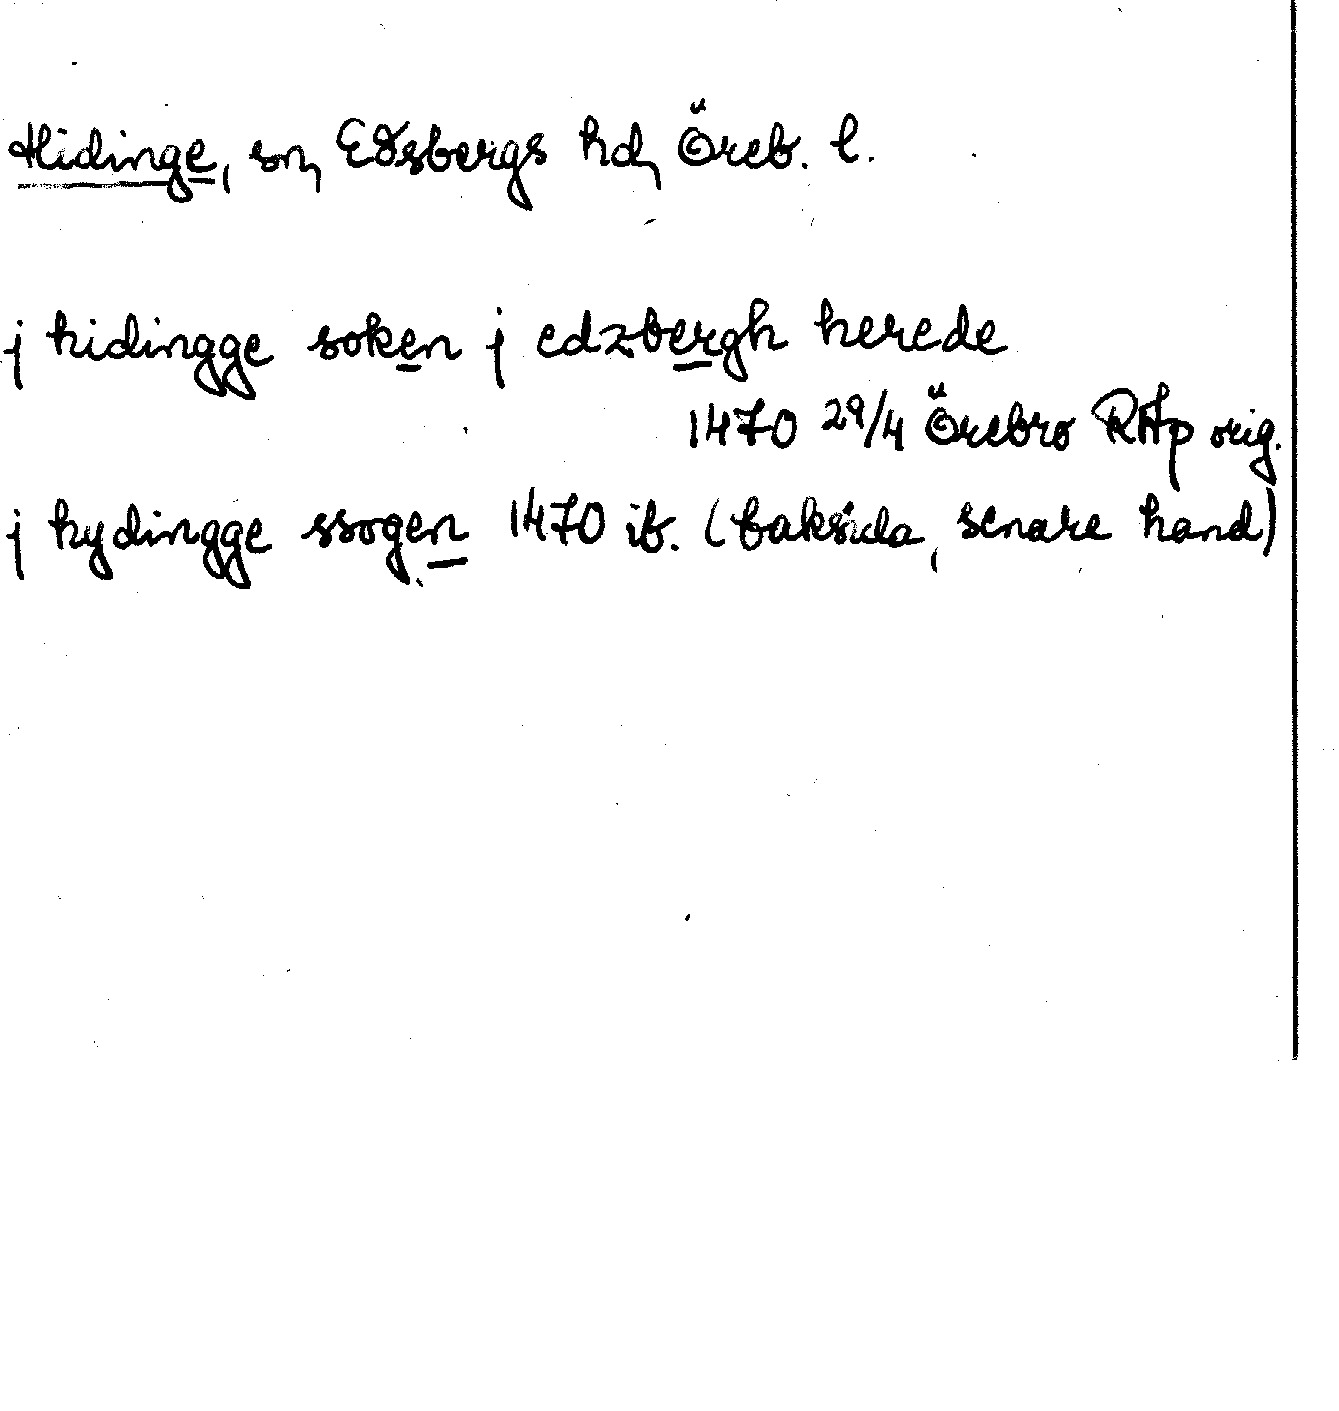 Hidinge, sn, Edsbergs hd, Öreb. l.
j hidingge soken j edzbergh herede
1470 29/4 Örebro RAp orig.
j hydingge ssogen 1470 ib. (baksida, senare hand)